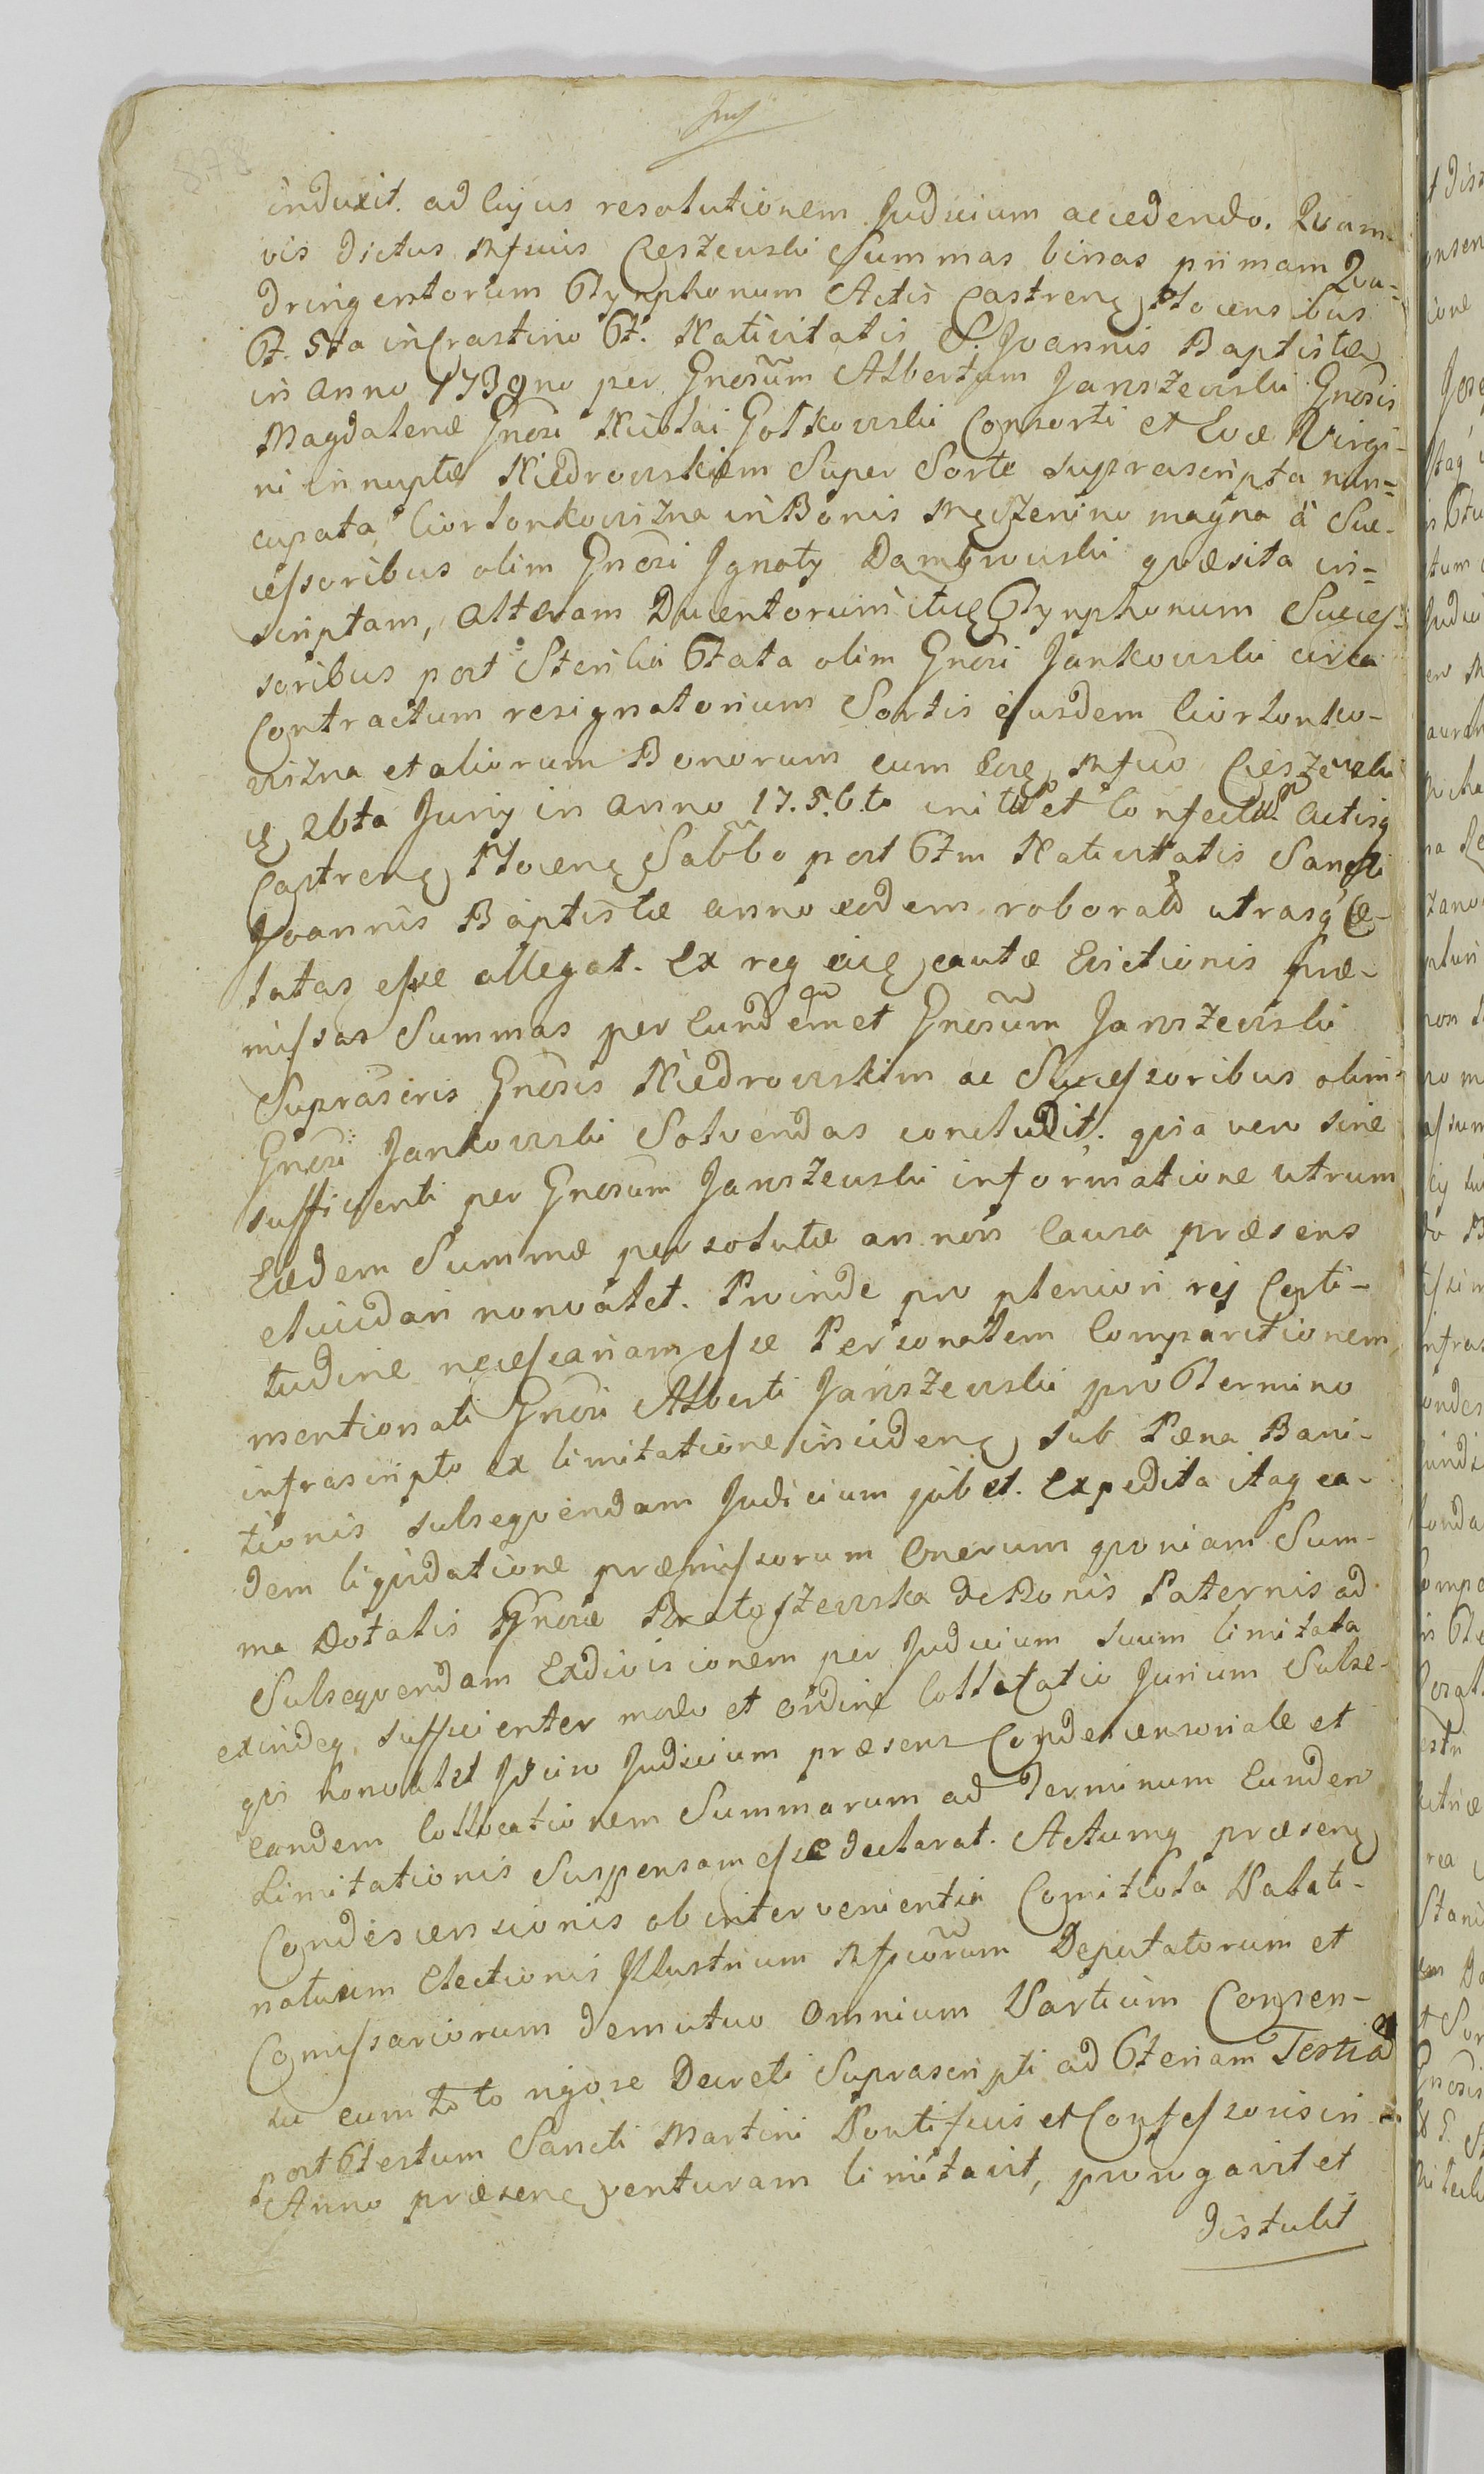 878
induxit. ad cujus resolutionem Judicium accedendo. Quam-
vis dictus Mfcuis Cieszewski Summas binas primam Qua-
dringentorum Tynphonum Actis Castren Plocensibus
F. 5ta in Crastino F. Nativitatis S. Joannis Baptistæ
in anno 1739no per Gnosum Albertum Janszewski Gnosis
Magdalenæ Gnosi Nicolai Golkowski Consorti et Evæ Virgi-
ni innuptæ Niedrowskiem Super Sorte suprascripta nun-
cupata Ciorlonkowizna in Bonis Męczenino magna à Suc-
cessoribus olim Gnosi Ignaty Dambrowski quæsita in-
scriptam, alteram Ducentorum itue Tynphonum Succes-
soribus post Sterilia Fata olim Gnosi Jankowski circa
Contractum resignatorium Sortis ejusdem Ciorlonko-
wizna et aliorum Bonorum cum Mfco Cieszewski
26ta Juny in anno 17.5.6.to initum et Confectum Actisq
Castren Plocen Sabbo post Ftm Nativitatis Sancti
Joannis Baptistæ anno eodem roborato utrasq Cæ-
latas esse allegat. Ex req cautæ Evictionis præ-
missas Summas per eundemet Gnosum Janszewski
Suprascris Gnosis Niedrowskim ac Successoribus olim
Gnosi Jankowski Solvendas concludit. quia vero sine
sufficienti per Gnosum Janszewski informatione utrum
Eædem Summæ persolutæ an non Causa præsens
elucidari nonvalet. Proinde pro pleniori rej Certi-
tudine necessariam esse Personalem Comparitionem
mentionati Gnosi Alberti Janszewski pro Termino
infrascripto ex limitatione inciden sub Pæna Bani-
tionis subsequendam Judicium jubet. Expedita itaq ea-
dem liquidatione præmissorum Onerum quoniam Sum-
ma Dotalis Gnosæ Bratoszewska de Bonis Paternis ad
Subsequendam Exdivisionem per Judicium suum limitata
exindeq sufficienter modo et ordine Collocatio Jurium Subse-
qui nonvalet Ideiro Judicium præsens Condescensoriale et
eandem Collocationem Summarum ad Terminum Eundem
Limitationis Suspensam esse declarat. Actumq præsen
Condescensionis ob intervenientia Comitiola Palati-
natuum Electionis Illustrium Mfcorum Deputatorum et
Comissariorum de mutuo omnium Partium Consen-
su cum toto rigore Decreti Suprascripti ad Feriam Tertiam
post Festum Sancti Martini Pontificis et Confessoris in
Anno præsen venturam limitavit, prorogavit et
distulit